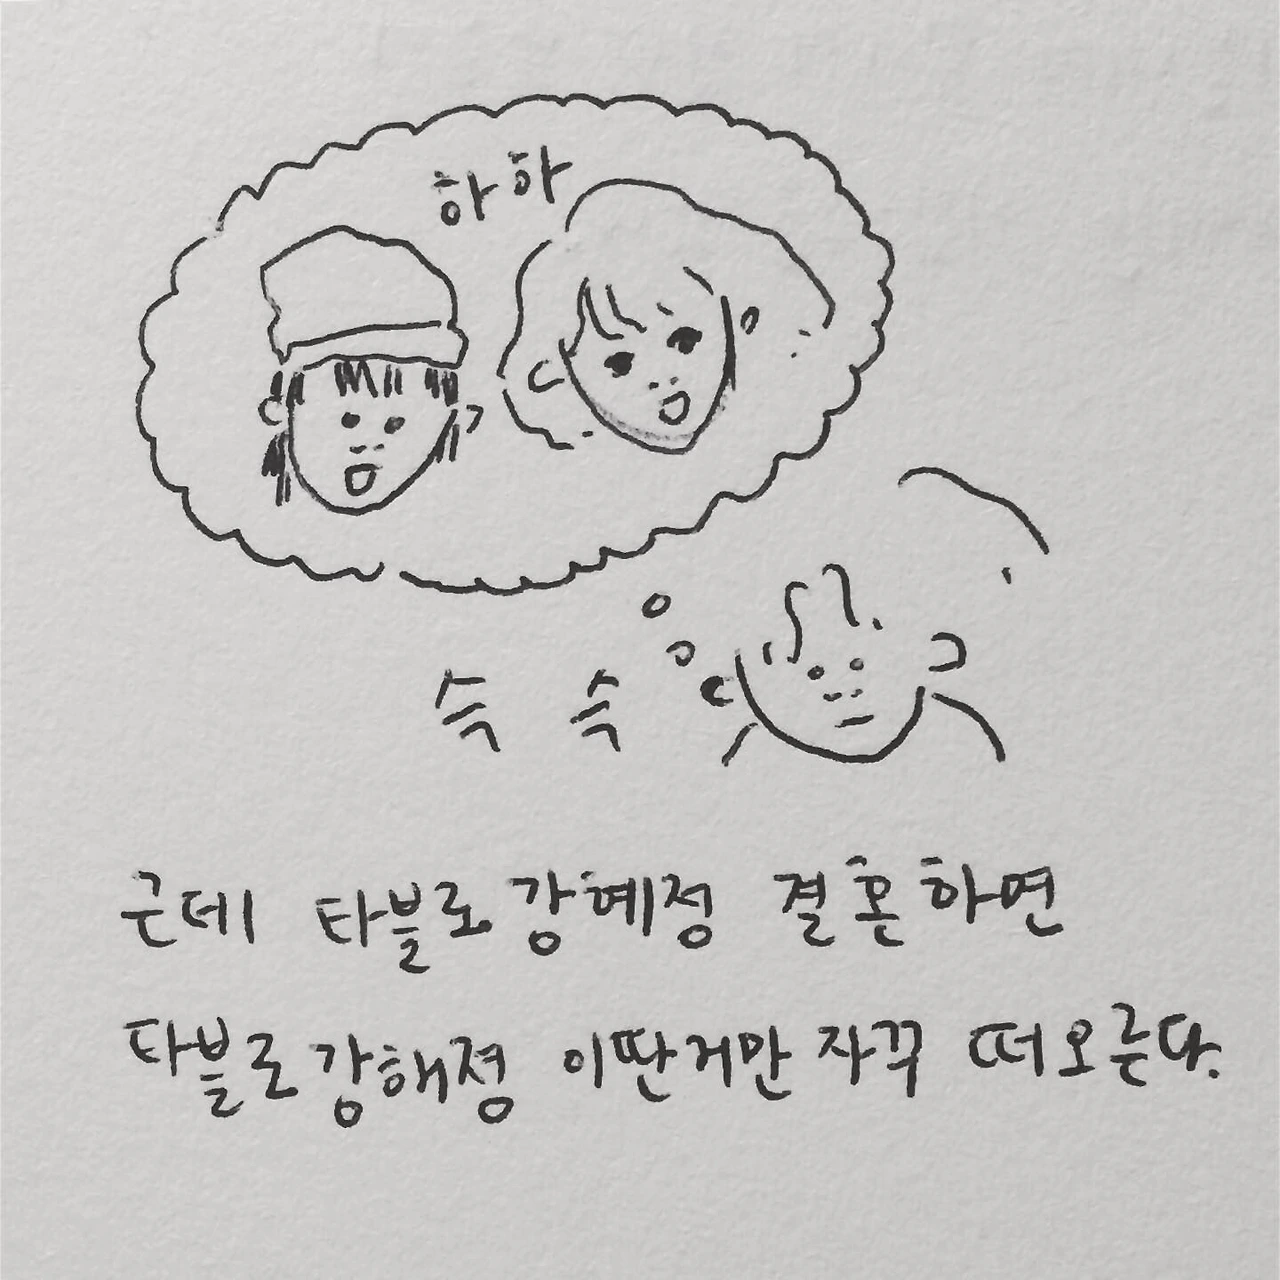 하하
슥 슥
근데 타블로강혜정 결혼하면
타블로강해졍 이딴거만 자꾸 떠오른다.